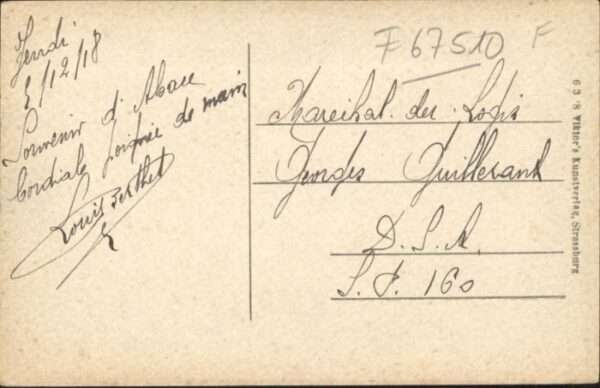 Jeudi
5/12/18
Souvenir d'Alsace
Cordiale poignée de main
Louis Berthet
F 67510 F
Marechal des Logis
Georges Guillerant
D.S.A.
S.P. 160
6 3 '8 Viktor's Kunstverlag, Strassburg